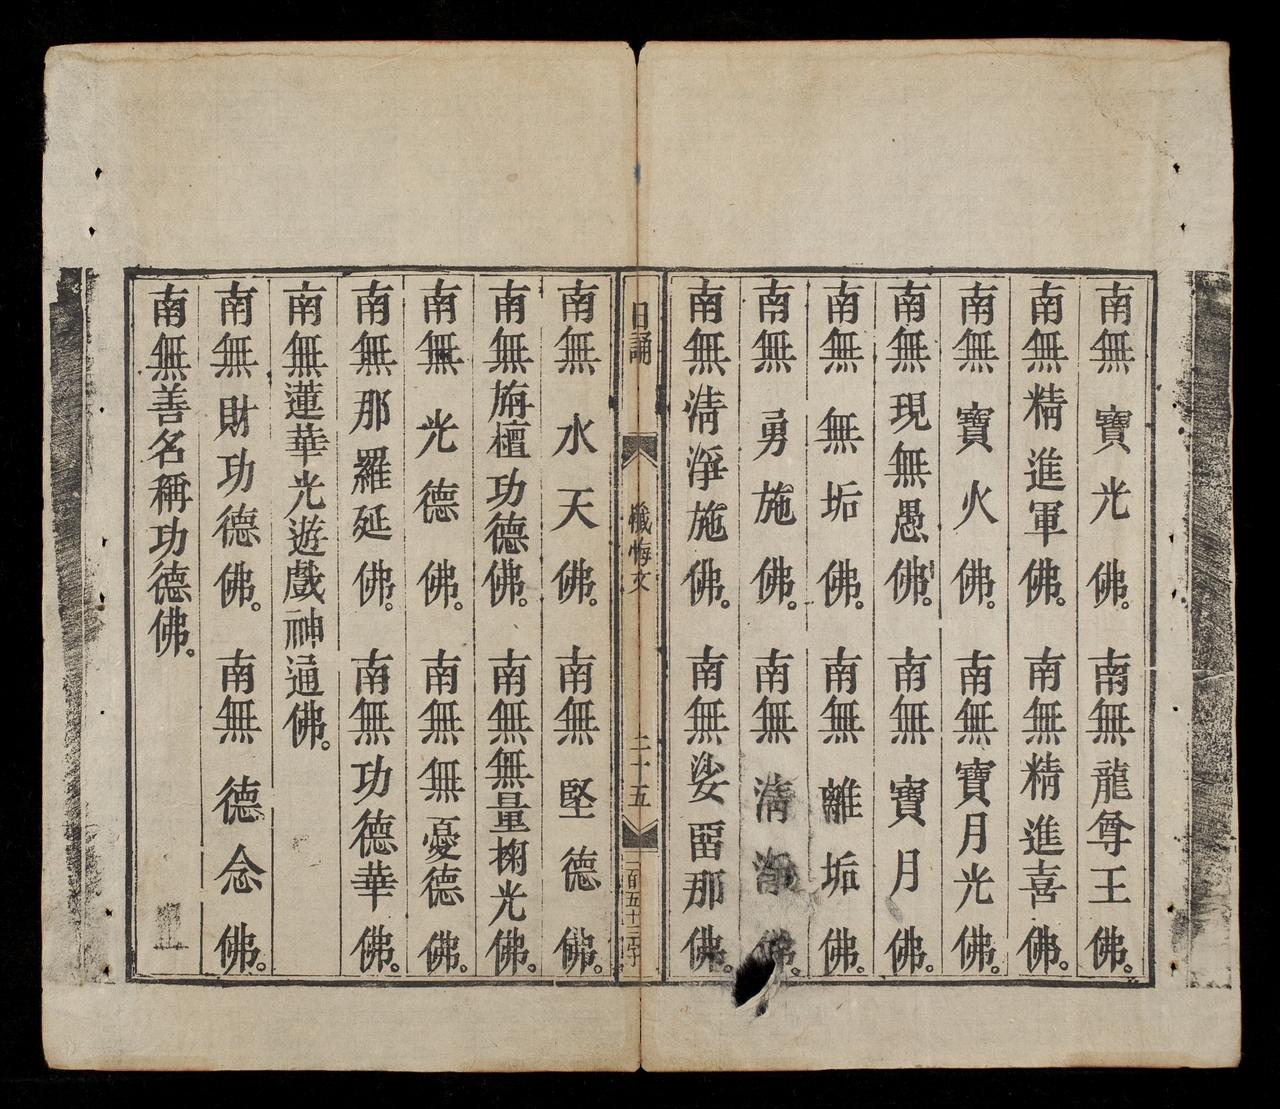 南無寶光佛。南無龍尊王佛。
南無精進軍佛。南無精進喜佛。
南無寶火佛。南無寶月光佛。
南無現無愚佛。南無寶月佛。
南無無垢佛。南無離垢佛。
南無勇施佛。南無清淨佛。
南無清淨施佛。南無娑留那佛。
日誦 懺悔文 二十五 二百五十三字
南無水天佛。南無堅德佛。
南無旃檀功德佛。南無無量掬光佛。
南無光德佛。南無無憂德佛。
南無那羅延佛。南無功德華佛。
南無蓮華光遊戲神通佛。
南無財功德佛。南無德念佛。
南無善名稱功德佛。